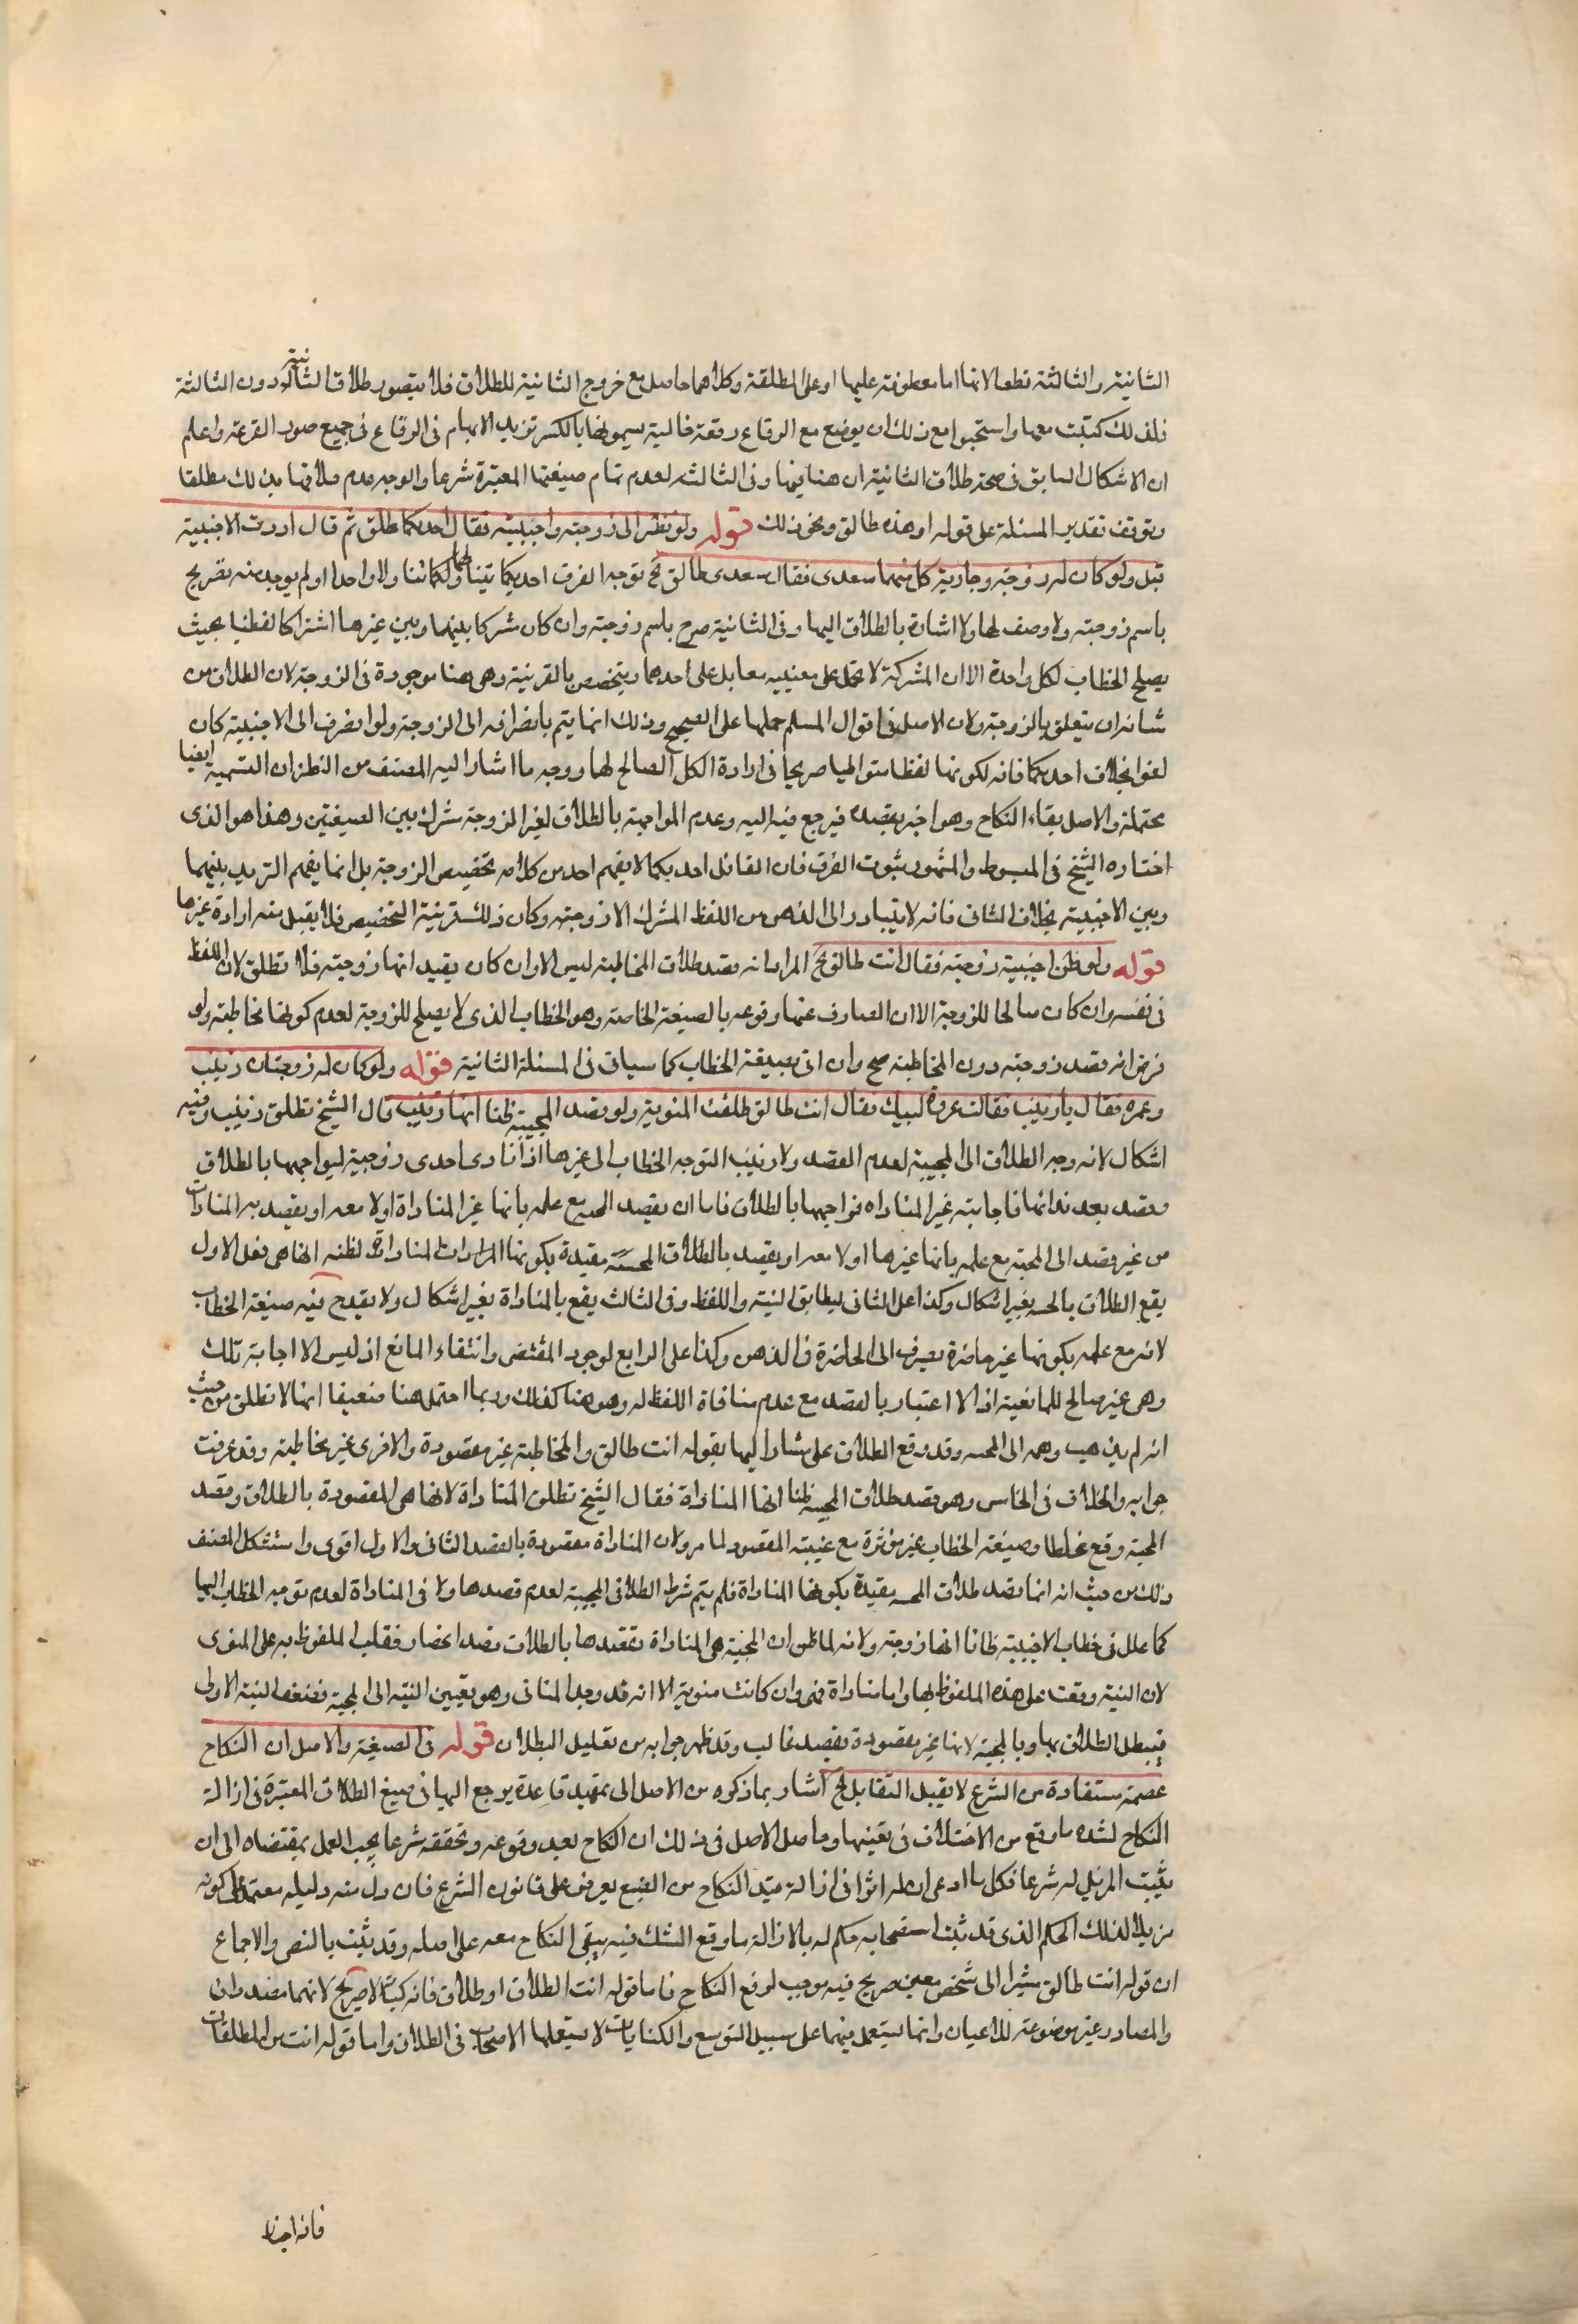 الثانية والثالثة قطعا لانها اما معطوفة عليها او على المطلقة وكلاهما حاصل مع خروج الثانية للطلاق فلا يتصور طلاق الثانية دون الثالثة
فلذلك كتبت معها واستحبوا مع ذلك ان يوضع مع الرقاع رقعة خالية يسمونها بالكسر تزيد الابهام فى الرقاع فى جميع صور القرعة واعلم
ان الاشكال السابق فى صحة طلاق الثانية ان هنا فيها وفى الثالثة لعدم تمام صيغتها المعتبرة شرعا والوجه عدم طلاقها بذلك مطلقا
ويتوقف تقدير المسئلة على قوله او هذه طالق ونحو ذلك قوله ولو نظر الى زوجته واجنبية فقال احديكما طالق ثم قال اردت الاجنبية
قبل ولو كان له زوجة وجارية كل منهما سعدى فقال سعدى طالق الخ توجه الفرق احديكما يتناولهما تناولا واحدا ولم يوجد منه تصريح
باسم زوجته ولا وصف لها ولا اشارة بالطلاق اليها وفى الثانية صرح باسم زوجته وان كان مشتركا بينها وبين غيرها اشتراكا لفظيا بحيث
يصلح الخطاب لكل واحدة الا ان المشترك لا يحمل على معنييه معا بل على احدهما ويتخصص بالقرينة وهى هنا موجودة فى الزوجة لان الطلاق من
شانه ان يتعلق بالزوجة ولان الاصل فى اقوال المسلم حملها على الصحيح وذلك انما يتم بانصرافه الى الزوجة ولو انصرف الى الاجنبية كان
لغوا بخلاف احديكما فانه لكونها لفظا متواطيا صريحا فى ارادة الكل الصالح لها ووجه ما اشار اليه المصنف من النظر ان التسمية ايضا
محتملة والاصل بقاء النكاح وهو اخبر بقصده فيرجع فيه اليه وعدم المواجهة بالطلاق لغير الزوجة مشترك بين الصيغتين وهذا هو الذى
اختاره الشيخ فى المبسوط والمشهور ثبوت الفرق فان القائل احديكما لا يفهم احد من كلامه تخصيص الزوجة بل انما يفهم الترديد بينهما
وبين الاجنبية بخلاف الثانى فانه لا يتبادر الى الذهن من اللفظ المشترك الا زوجته وكان ذلك قرينة التخصيص فلا يقبل منه ارادة غيرها
قوله ولو ظن اجنبية زوجته فقال انت طالق الخ المراد انه قصد طلاق المخاطبة ليس الا وان كان بقيد انها زوجته فلا تطلق لان اللفظ
فى نفسه وان كان صالحا للزوجة الا ان الصارف عنها وقوعه بالصيغة الخاصة وهو الخطاب الذى لا يصلح للزوجة لعدم كونها مخاطبة ولو
فرض انه قصد زوجته دون المخاطبة صح وان اتى بصيغة الخطاب كما سياتى فى المسئلة الثانية قوله ولو كان له زوجتان زينب
وعمرة فقال يا زينب فقالت عمرة لبيك فقال انت طالق طلقت المنوية ولو قصد المجيبة ظنا انها زينب قال الشيخ تطلق زينب وفيه
اشكال لانه وجه الطلاق الى المجيبة لعدم القصد ولا زينب التوجه الخطاب الى غيرها اذا نادى احدى زوجتيه ليواجهها بالطلاق
وقصد بعد ندائها فاجابته غير المناداه فواجهها بالطلاق فاما ان يقصد المجيبة مع علمه بانها غير المناداة اولا معه او يقصد به المنادات
من غير قصد الى المجيبة مع علمه بانها غيرها اولا معه او يقصد بالطلاق المجيبة مقيدة بكونها المناداة لظنه انها هى فعلى الاول
يقع الطلاق بالمجيبة بغير اشكال وكذا على الثانى ليطابق النية واللفظ وفى الثالث يقع بالمناداة بغير اشكال ولا يقدح فيه صيغة الخطاب
لانه مع علمه بكونها غير حاضرة يصرف الى الحاضرة فى الذهن وكذا على الرابع لوجود المقتضى وانتفاء المانع اذ ليس الا اجابة تلك
وهى غير صالح للمانعية اذ لا اعتبار بالقصد مع عدم منافاة اللفظ له وهو هنا كذلك وربما احتمل هنا ضعيفا انها لا تطلق من حيث
انه لم يذهب وهمه الى المجيبة وقد وقع الطلاق على مشار اليها بقوله انت طالق والمخاطبة غير مقصودة والاخرى غير مخاطبة وقد عرفت
جوابه والخلاف فى الخامس وهو قصد طلاق المجيبة ظنا انها المناداة فقال الشيخ تطلق المناداة لانها هى المقصودة بالطلاق وقصد
المجيبة وقع غلطا وصيغة الخطاب غير مؤثرة مع غيبة المقصود لما مر ولان المناداة مقصودة بالقصد الثانى والاول اقوى واستشكل المصنف
ذلك من حيث انه انما قصد طلاق المجيبة مقيدة بكونها المناداة فلم يتم شرط الطلاق فى المجيبة لعدم قصدها ولا فى المناداة لعدم توجه الخطاب اليها
كما علل فى خطاب الاجنبية ظانا انها زوجته ولانه لما ظن ان المجيبة هى المناداة فقصدها بالطلاق فقد انصار فغلب الملفوظ به على المنوى
لان النية وقعت على هذه الملفوظ بها واما مناداة فهى وان كانت منوية الا انه قد وجد المنافى وهو تعيين النية الى المجيبة فضعف النية الاولى
فيبطل الطلاق بها وبالمجيبة لانها غير مقصودة بقصد غالب وقد ظهر جوابه من تعليل البطلان قوله فى الصيغة والاصل ان النكاح
عصمة مستفادة من الشرع لا يقبل التقابل الخ اشار بما ذكره من الاصل الى تمهيد قاعدة يرجع اليها فى صيغ الطلاق المعتبرة فى ازالة
النكاح لشدة ما وقع من الاختلاف فى تعينها وحاصل الاصل فى ذلك ان النكاح بعد وقوعه وتحققه شرعا يجب العمل بمقتضاه الى ان
يثبت المزيل له شرعا فكل ما ادعى ان له اثرا فى ازالة قيد النكاح من الصيغ يعرض على قانون الشرع فان دل منه دليله معتمد على كونه
مزيلا لذلك الحكم الذى قد ثبت استصحابه حكم له بالازالة وما وقع الشك فيه يبقى النكاح معه على اصله وقد ثبت بالنص والاجماع
ان قوله انت طالق مشيرا الى شخص معين صريح فيه موجب لرفع النكاح فاما قوله انت الطلاق او طلاق فانه كناية لا صريح لانهما مصدران
والمصادر غير موضوعة للاعيان وانما يستعمل فيهما على سبيل التوسع والكنايات لا يستعملها الاصحاب فى الطلاق واما قوله انت من المطلقات
فانه اخبار